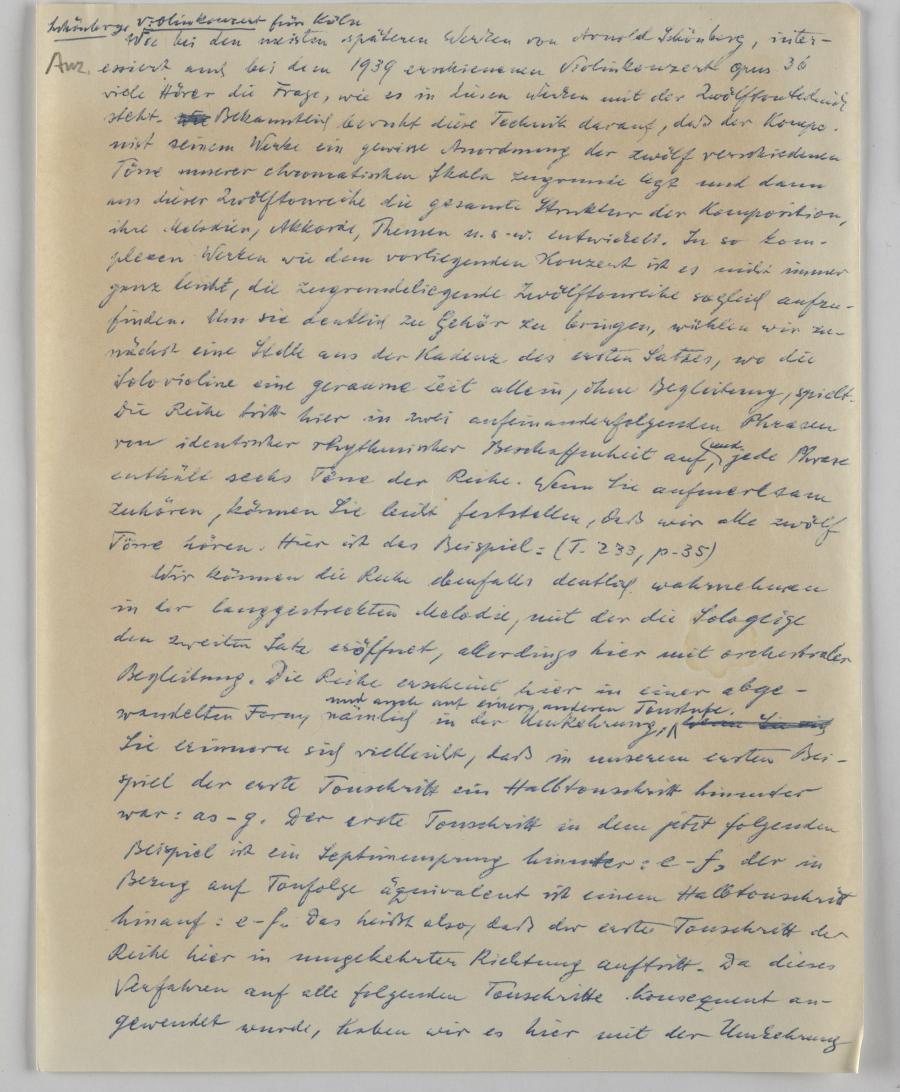 Schönbergs Violinkonzert für Köln
Wie bei den meisten späteren Werken von Arnold Schönberg, inter-
Anz.
essiert auch bei dem 1939 erschienenen Violinkonzert opus 36
viele Hörer die Frage, wie es in diesen Werken mit der Zwölftontechnik
steht. Bekanntlich beruht diese Technik darauf, daß der Kompo-
nist seinem Werke ein gewisse Anordnung der zwölf verschiedenen
Töne unserer chromatischen Skala zugrunde legt und dann
aus dieser Zwölftonreihe die gesamte Struktur der Komposition,
ihre Melodien, Akkorde, Themen u.s.w. entwickelt. In so kom-
plexen Werken wie dem vorliegenden Konzert ist es nicht immer
ganz leicht, die zugrundeliegende Zwölftonreihe sogleich aufzu-
finden. Um sie deutlich zu Gehör zu bringen, wählen wir zu-
nächst eine Stelle aus der Kadenz des ersten Satzes, wo die
Solovioline eine geraume Zeit allein, ohne Begleitung, spielt.
Die Reihe tritt hier in zwei aufeinanderfolgenden Phrasen
von identischer rhythmischer Beschaffenheit auf, und jede Phrase
enthält sechs Töne der Reihe. Wenn Sie aufmerksam
zuhören, können Sie leicht feststellen, daß wir alle zwölf
Töne hören. Hier ist das Beispiel: (T. 233, p. 35)
Wir können die Reihe ebenfalls deutlich wahrnehmen
in der langgestreckten Melodie, mit der die Sologeige
den zweiten Satz eröffnet, allerdings hier mit orchestraler
Begleitung. Die Reihe erscheint hier in einer abge-
und auch auf einer anderen Tonstufe.
wandelten Form, nämlich in der Umkehrung, wenn Sie sich
Sie erinnern sich vielleicht, daß in unserem ersten Bei-
spiel der erste Tonschritt ein Halbtonschritt hinunter
war: as-g. Der erste Tonschritt in dem jetzt folgenden
Beispiel ist ein Septimensprung hinunter: e-f, der in
Bezug auf Tonfolge äquivalent ist einem Halbtonschritt
hinauf: e-f. Das heißt also, daß der erste Tonschritt der
Reihe hier in umgekehrter Richtung auftritt. Da dieses
Verfahren auf alle folgenden Tonschritte konsequent an-
gewendet wurde, haben wir es hier mit der Umkehrung